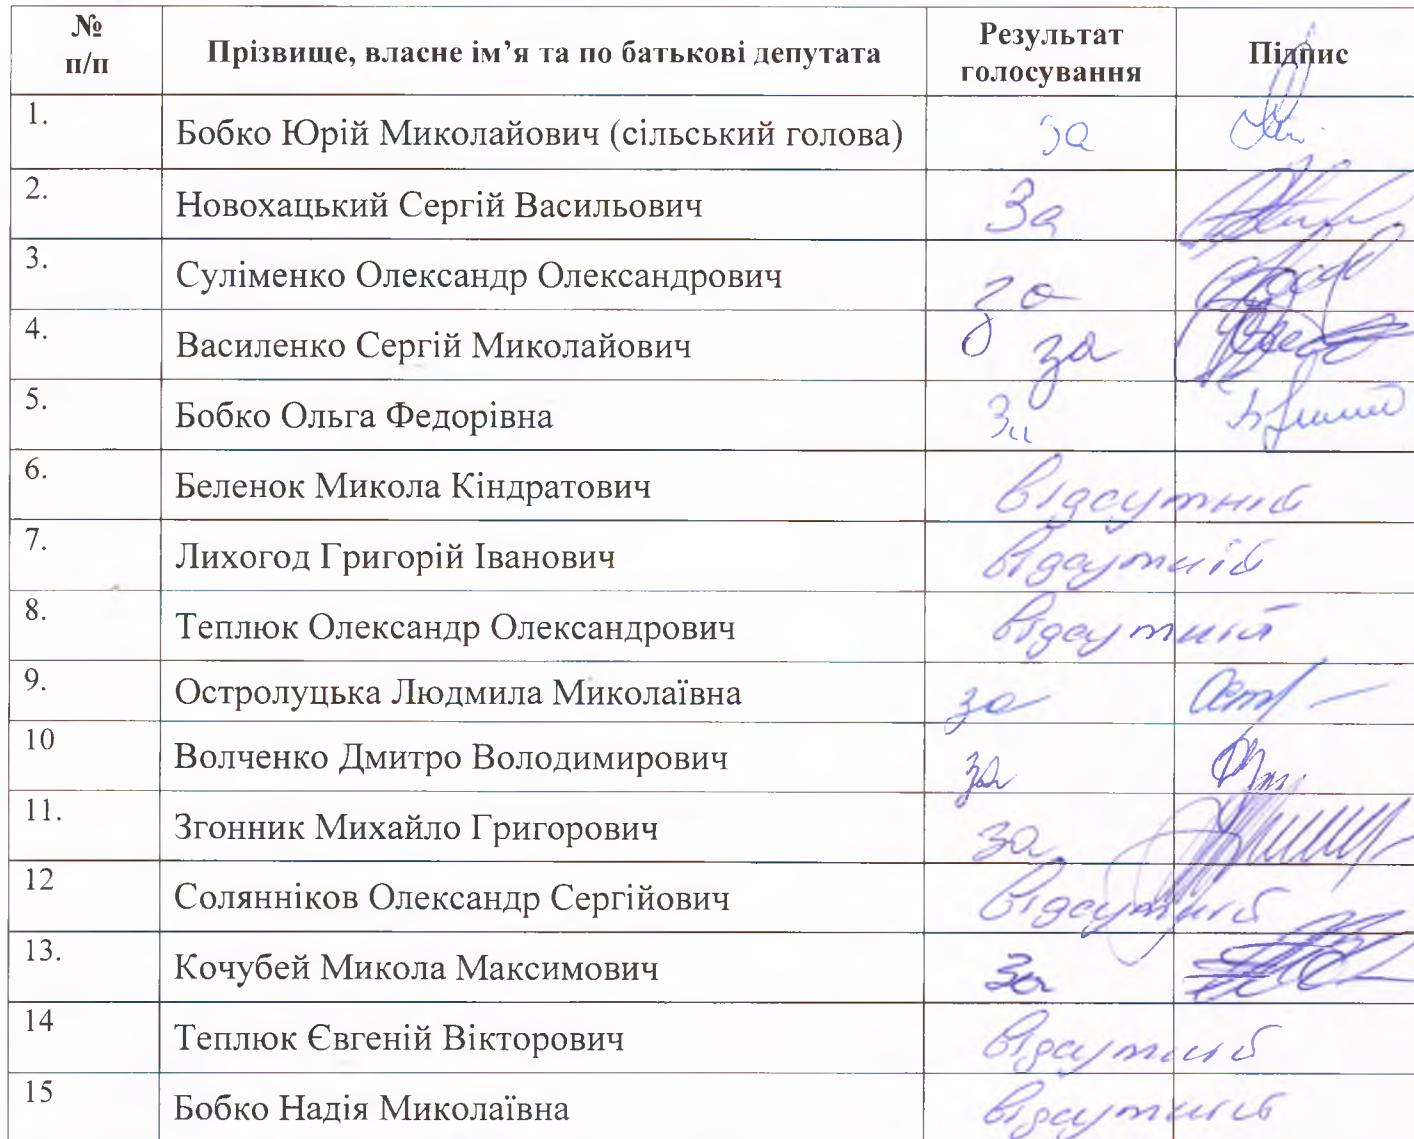 № п/п Прізвище, власне ім’я та по батькові депутата Результат голосування Підпис
1. Бобко Юрій Миколайович (сільський голова) за
2. Новохацький Сергій Васильович За
3. Суліменко Олександр Олександрович за
4. Василенко Сергій Миколайович за
5. Бобко Ольга Федорівна За
6. Беленок Микола Кіндратович відсутній
7. Лихогод Григорій Іванович відсутній
8. Теплюк Олександр Олександрович відсутній
9. Остролуцька Людмила Миколаївна за
10 Волченко Дмитро Володимирович за
11. Згонник Михайло Григорович за
12 Солянніков Олександр Сергійович відсутній
13. Кочубей Микола Максимович За
14 Теплюк Євгеній Вікторович відсутній
15 Бобко Надія Миколаївна відсутній